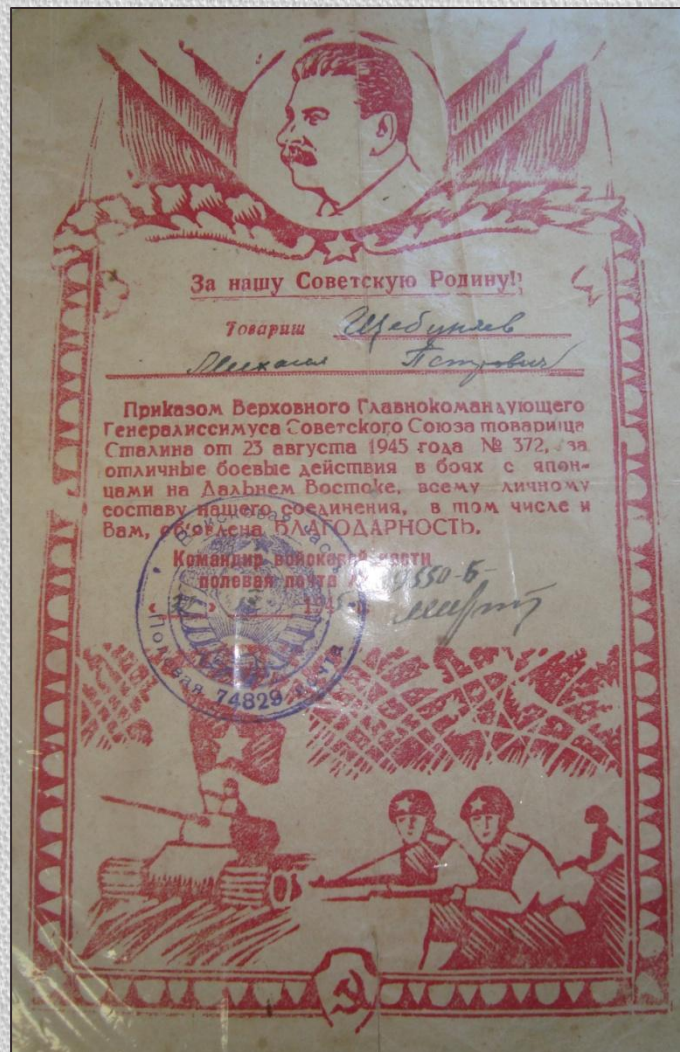 За нашу Советскую Родину!
Товарищ Щебуняев
Михаил Петрович
Приказом Верховного Главнокомандующего
Генералиссимуса Советского Союза товарища
Сталина от 23 августа 1945 года № 372, за
отличные боевые действия в боях с япон-
цами на Дальнем Востоке, всему личному
составу нашего соединения, в том числе и
Вам, об‘явлена БЛАГОДАРНОСТЬ.
Командир войсковой части
полевая почта 9550-Б
1945
Полевая 74829 почта